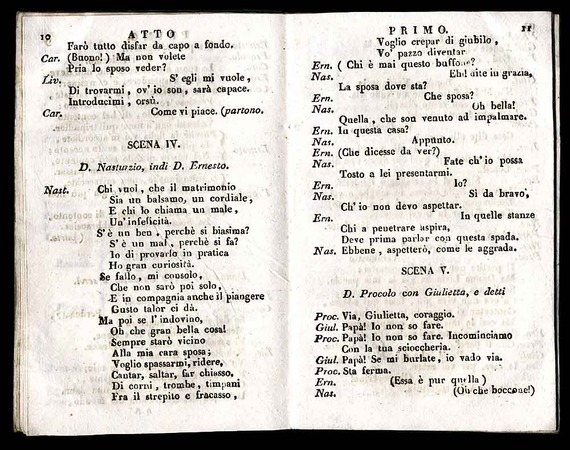 10 ATTO
Farò tutto disfar da capo a fondo.
Car. (Buono!) Ma non volete
Pria lo sposo veder?
Liv. S' egli mi vuole,
Di trovarmi, ov' io son, sarà capace.
Introducimi, orsù.
Car. Come vi piace. (partono.
SCENA IV.
D. Nasturzio, indi D. Ernesto.
Nast. Chi vuol, che il matrimonio
Sia un balsamo, un cordiale,
E chi lo chiama un male,
Un' infelicità.
S' è un ben, perchè si biasima?
S' è un mal, perchè si fa?
Io di provarlo in pratica
Ho gran curiosità.
Se fallo, mi consolo,
Che non sarò poi solo,
E in compagnia anche il piangere
Gusto talor ci dà.
Ma poi se l' indovino,
Oh che gran bella cosa!
Sempre starò vicino
Alla mia cara sposa;
Voglio spassarmi, ridere,
Cantar, saltar, far chiasso,
Di corni, trombe, timpani
Fra il strepito e fracasso,
PRIMO. 11
Voglio crepar di giubilo,
Vo' pazzo diventar
Ern. (Chi è mai questo buffone?)
Nas. Eh! dite in grazia,
La sposa dove sta?
Ern. Che sposa?
Nas. Oh bella!
Quella, che son venuto ad impalmare.
Ern. In questa casa?
Nas. Appunto.
Ern. (Che dicesse da ver?)
Nas. Fate ch' io possa
Tosto a lei presentarmi.
Ern. Io?
Nas. Sì da bravo,
Ch' io non devo aspettar.
Ern. In quelle stanze
Chi a penetrare aspira,
Deve prima parlar con questa spada.
Nas. Ebbene, aspetterò, come le aggrada.
SCENA V.
D. Procolo con Giulietta, e detti
Proc. Via, Giulietta, coraggio.
Giul. Papà! Io non so fare.
Proc. Papà! Io non so fare. Incominciamo
Con la tua scioccheria.
Giul. Papà! Se mi burlate, io vado via.
Proc. Sta ferma.
Ern. (Essa è pur quella)
Nas. (Oh che boccone!)